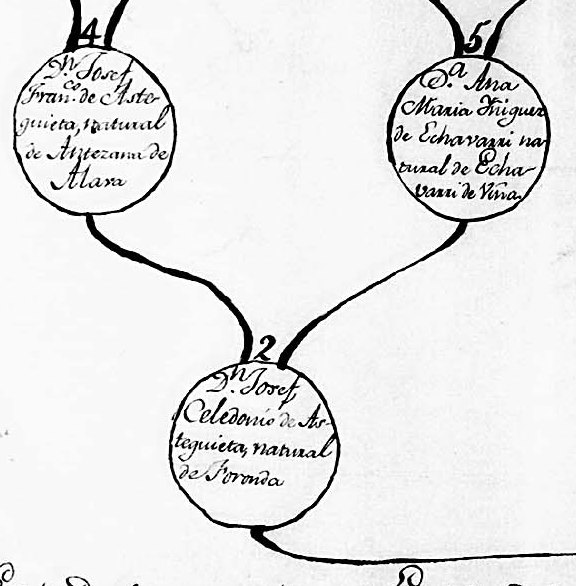 4
Dn. Josef
Franco. de Aste-
guieta, natural
de Antezana de
Alava
5
D.a Ana
Maria Iñiguez
de Echavarri na-
tural de Echa-
varri de Viña.
2
Dn. Josef
Celedonio de As-
teguieta, natural
de Foronda